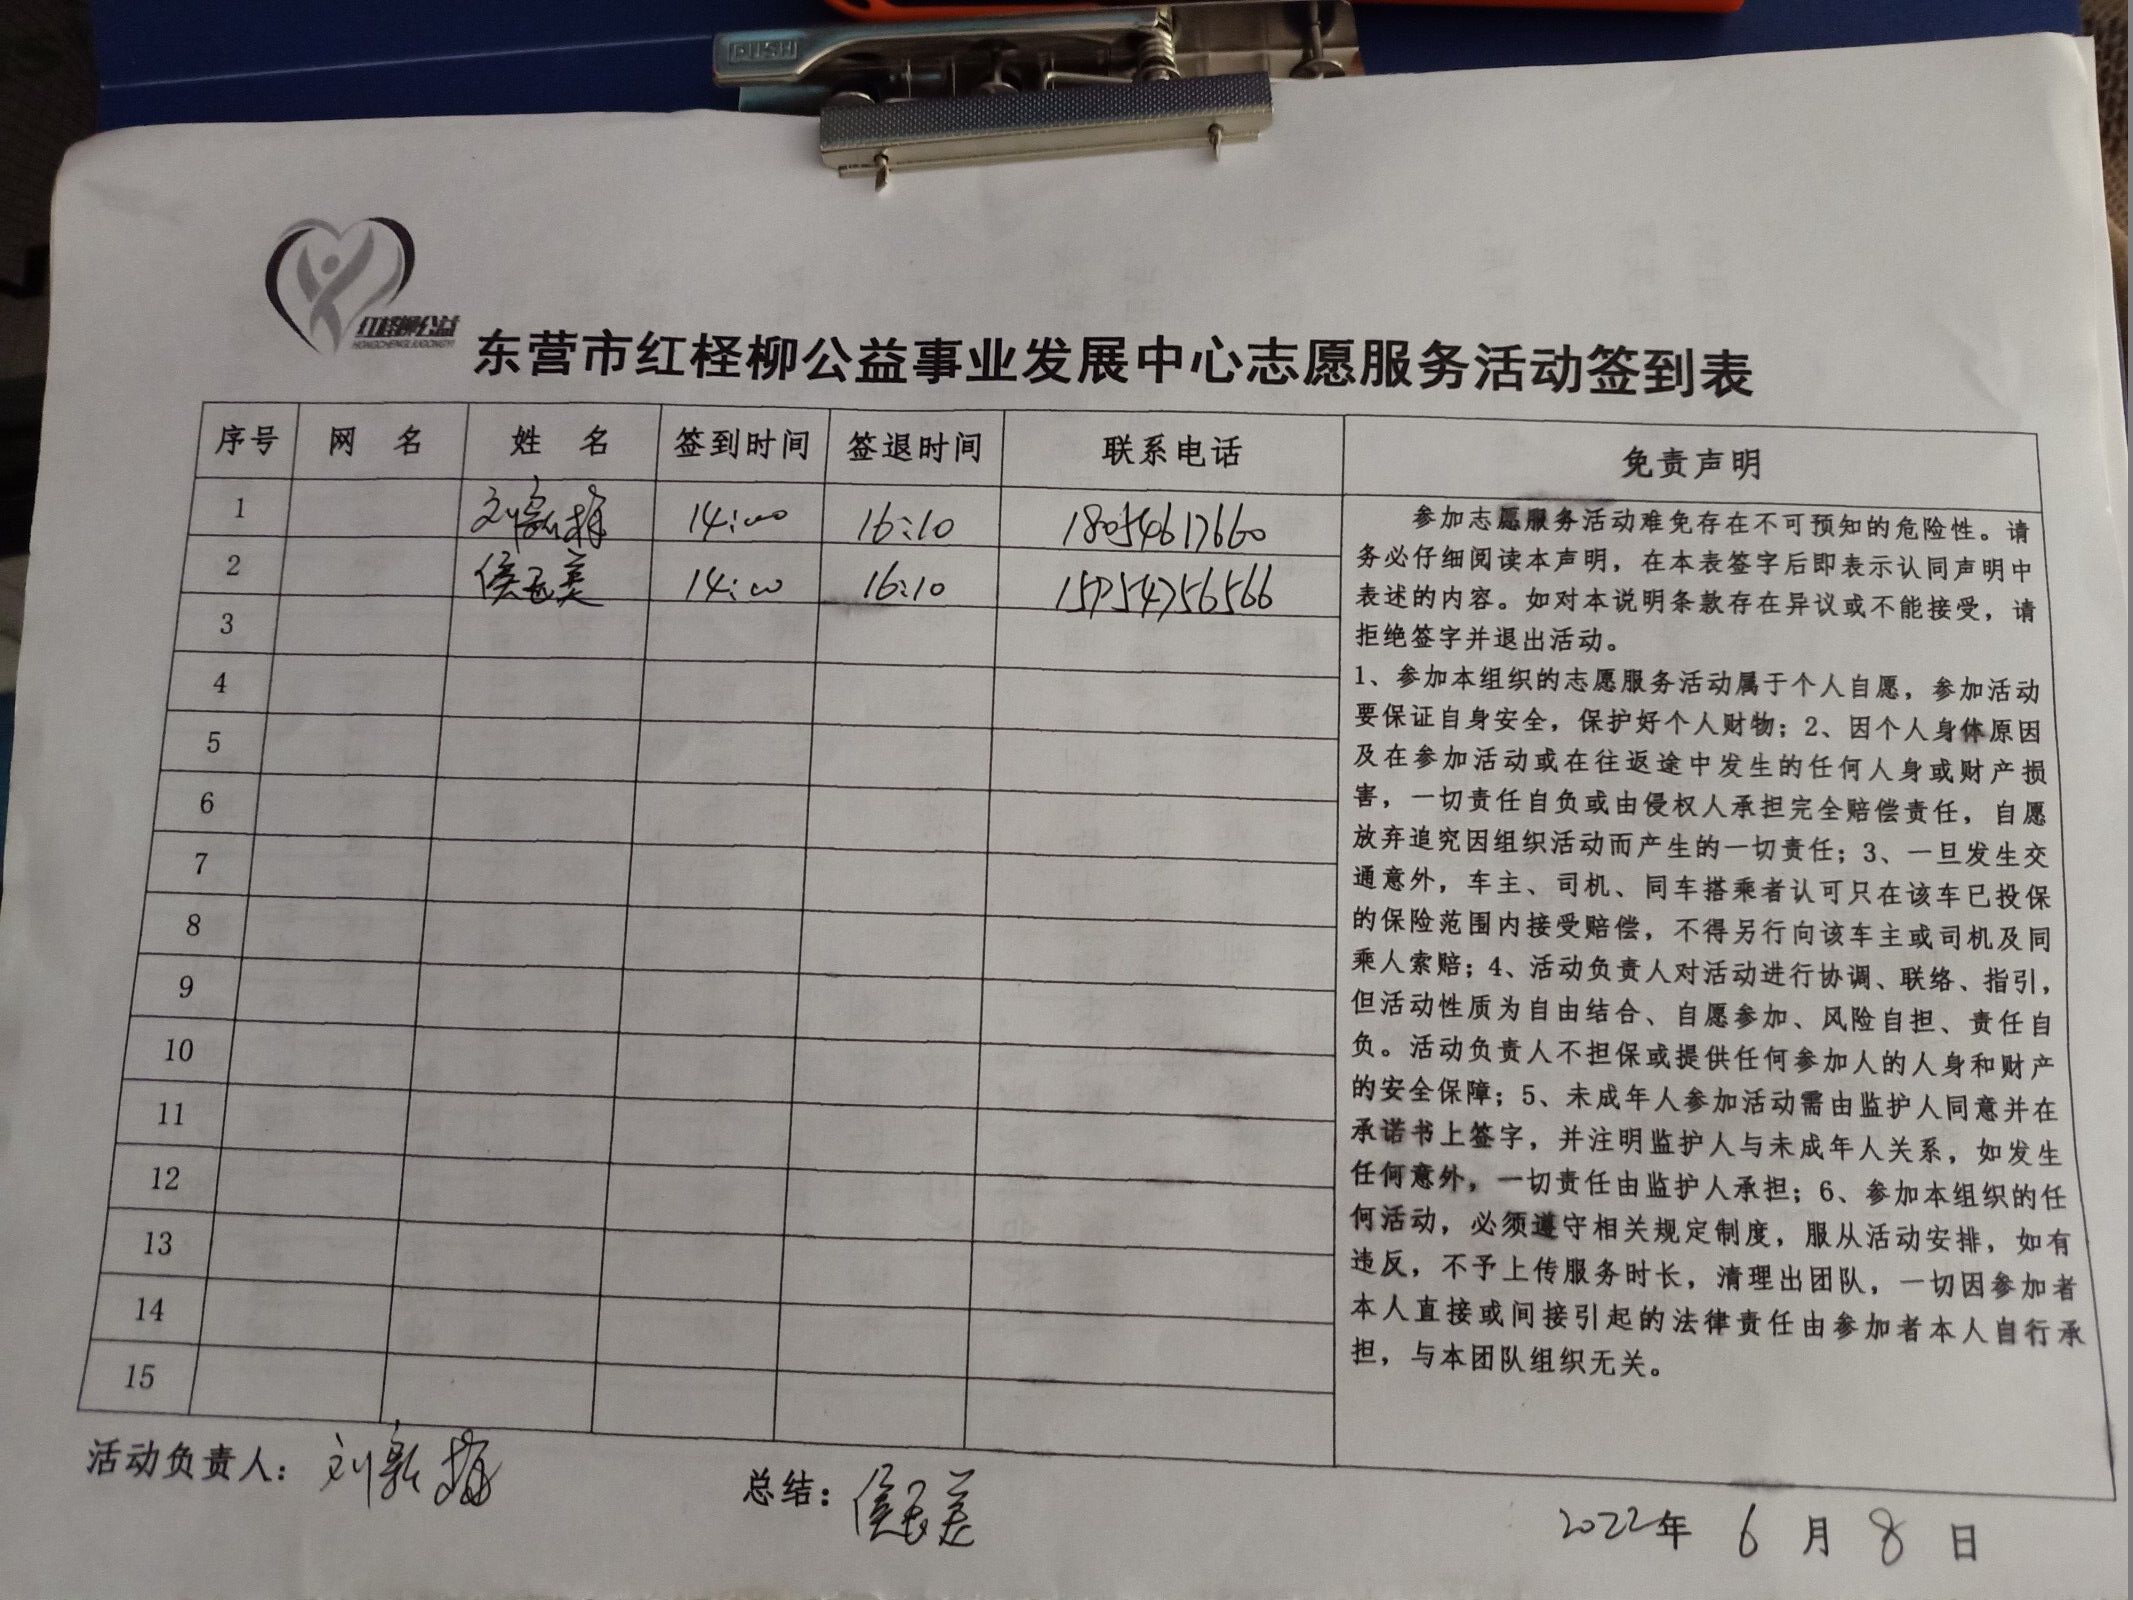 PUSH
红柽柳公益
HONGCHENGLIUGONGYI
东营市红柽柳公益事业发展中心志愿服务活动签到表
序号 网 名 姓 名 签到时间 签退时间 联系电话 免责声明
1 14:00 16:10 18054617660
2 侯玉英 14:00 16:10 15754756566
3
4
5
6
7
8
9
10
11
12
13
14
15
参加志愿服务活动难免存在不可预知的危险性。请
务必仔细阅读本声明，在本表签字后即表示认同声明中
表述的内容。如对本说明条款存在异议或不能接受，请
拒绝签字并退出活动。
1、参加本组织的志愿服务活动属于个人自愿，参加活动
要保证自身安全，保护好个人财物；2、因个人身体原因
及在参加活动或在往返途中发生的任何人身或财产损
害，一切责任自负或由侵权人承担完全赔偿责任，自愿
放弃追究因组织活动而产生的一切责任；3、一旦发生交
通意外，车主、司机、同车搭乘者认可只在该车已投保
的保险范围内接受赔偿，不得另行向该车主或司机及同
乘人索赔；4、活动负责人对活动进行协调、联络、指引，
但活动性质为自由结合、自愿参加、风险自担、责任自
负。活动负责人不担保或提供任何参加人的人身和财产
的安全保障；5、未成年人参加活动需由监护人同意并在
承诺书上签字，并注明监护人与未成年人关系，如发生
任何意外，一切责任由监护人承担；6、参加本组织的任
何活动，必须遵守相关规定制度，服从活动安排，如有
违反，不予上传服务时长，清理出团队，一切因参加者
本人直接或间接引起的法律责任由参加者本人自行承
担，与本团队组织无关。
活动负责人： 总结：侯玉英
2022年 6 月 8 日